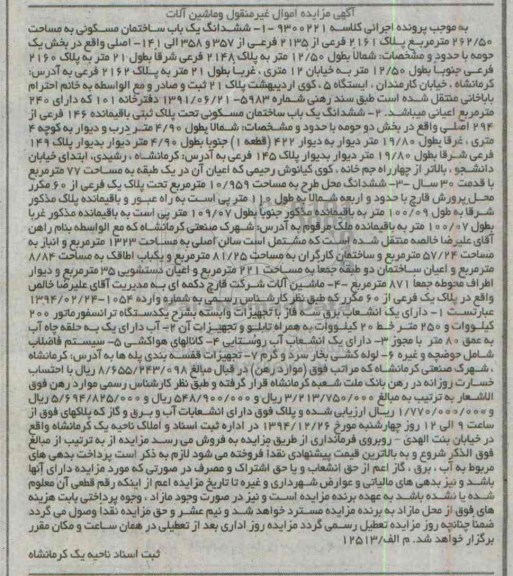 آگهی مزایده اموال غیرمنقول وماشین آلات
به موجب پرونده اجرائی کلاسه ۹۳۰۰۲۲۱ -۱- ششدانگ یک باب ساختمان مسکونی به مساحت
۲۶۲/۵۰ مترمربع پلاک ۲۱۶۱ فرعی از ۲۱۳۵ فرعی از ۳۵۷ و ۳۵۸ الی ۱۴۱- اصلی واقع در بخش یک
حومه با حدود و مشخصات: شمالا بطول ۱۲/۵۰ متر به پلاک ۲۱۴۸ فرعی شرقا بطول ۲۱ متر به پلاک ۲۱۶۰
فرعی جنوبا بطول ۱۲/۵۰ متر به خیابان ۱۲ متری ، غربا بطول ۲۱ متر به پلاک ۲۱۶۲ فرعی به آدرس:
کرمانشاه ، خیابان کارمندان ، ایستگاه ۵ ، کوی اردیبهشت پلاک ۲۱ ثبت و صادر و مع الواسطه به خانم احترام
باباخانی منتقل شده است طبق سند رهنی شماره ۵۹۸۳- ۱۳۹۱/۰۶/۲۱ دفترخانه ۱۰۱ که دارای ۲۴۰
مترمربع اعیانی میباشد. ۲- ششدانگ یک باب ساختمان مسکونی تحت پلاک ثبتی باقیمانده ۱۴۶ فرعی از
۲۹۴ اصلی واقع در بخش دو حومه با حدود و مشخصات: شمالا بطول ۴/۹۰ متر درب و دیوار به کوچه ۴
متری ، غرقا بطول ۱۹/۸۰ متر دیوار به دیوار ۴۲۲ (قطعه ۱) جنوبا بطول ۴/۹۰ متر دیوار بدیوار پلاک ۱۴۹
فرعی شرقا بطول ۱۹/۸۰ متر دیوار بدیوار پلاک ۱۴۵ فرعی به آدرس: کرمانشاه ، رشیدی، ابتدای خیابان
دانشجو ، بالاتر از چهارراه جم خانه ، کوی کیانوش رحیمی که اعیان آن در یک طبقه به مساحت ۷۷ مترمربع
با قدمت ۳۰ سال -۳- ششدانگ محل طرح به مساحت ۱۰/۹۵۹ مترمربع تحت پلاک یک فرعی از ۶۰ مکرر
محل پرورش قارچ با حدود و اربعه شمالا به طول ۱۱۰ متر پی است به راه عبور و باقیمانده پلاک مذکور
شرقا به طول ۱۰۰/۰۹ متر به باقیمانده مذکور جنوبا بطول ۱۰۹/۰۷ متر پی است به باقیمانده مذکور غربا
بطول ۱۰۰/۰۷ متر به باقیمانده ملک مرقوم به آدرس: شهرک صنعتی کرمانشاه که مع الواسطه بنام راهن
آقای علیرضا خالصه منتقل شده است که مشتمل است سالن اصلی به مساحت ۱۳۲۳ مترمربع و انبار به
مساحت ۵۷/۲۴ مترمربع و ساختمان کارگران به مساحت ۸۱/۲۵ مترمربع و یکباب اطاقک به مساحت ۸/۸۴
مترمربع و اعیان ساختمان دو طبقه جمعا به مساحت ۲۲۱ مترمربع و اعیان دستشویی ۳۵ مترمربع و دیوار
اطراف محوطه جمعا ۸۷۱ مترمربع -۴- ماشین آلات شرکت قارچ دکمه ای به مدیریت آقای علیرضا خالص
واقع در پلاک یک فرعی از ۶۰ مکرر که طبق نظر کارشناس رسمی به شماره وارده ۱۰۵۴- ۱۳۹۴/۰۲/۲۴
عبارتست ۱- دارای یک انشعاب برق سه فاز با تجهیزات وابسته بشرح یکدستگاه ترانسفورماتور ۲۰۰
کیلووات و ۲۵۰ متر خط ۲۰ کیلووات به همراه تابلو و تجهیزات آن ۲- آب دارای یک به حلقه چاه آب
به عمق ۸۰ متر با مجوز ۳- دارای یک انشعاب آب روستایی ۴- کانالهای هواکشی ۵- سیستم فاضلاب
شامل حوضچه و غیره ۶- لوله کشی بخار سرد و گرم ۷- تجهیزات قفسه بندی پله ها به آدرس: کرمانشاه
، شهرک صنعتی کرمانشاه که مراتب فوق (موارد رهن) در قبال مبلغ ۸/۶۵۵/۲۴۳/۰۹۸ ریال با احتساب
خسارت روزانه در رهن بانک ملت شعبه کرمانشاه قرار گرفته و طبق نظر کارشناس رسمی موارد رهن فوق
الاشعار به ترتیب به مبالغ ۳/۲۱۳/۷۵۰/۰۰۰ ریال و ۵۴۸/۹۰۰/۰۰۰ ریال و ۵/۶۹۴/۸۲۵/۰۰۰ ریال
و ۱/۷۷۰/۰۰۰/۰۰۰ ریال ارزیابی شده و پلاک فوق دارای انشعابات آب و برق و گاز که پلاکهای فوق از
ساعت ۹ الی ۱۲ روز چهارشنبه مورخ ۱۳۹۴/۱۲/۲۶ در اداره ثبت اسناد و املاک ناحیه یک کرمانشاه واقع
در خیابان بنت الهدی - روبروی فرمانداری از طریق مزایده به فروش می رسد مزایده از به ترتیب از مبالغ
فوق الذکر شروع و به بالاترین قیمت پیشنهادی نقدا فروخته می شود لازم به ذکر است پرداخت بدهی های
مربوط به آب ، برق ، گاز اعم از حق انشعاب و یا حق اشتراک و مصرف در صورتی که مورد مزایده دارای آنها
باشد و نیز بدهی های مالیاتی و عوارض شهرداری و غیره تا تاریخ مزایده اعم از اینکه رقم قطعی آن معلوم
شده یا نشده باشد به عهده برنده مزایده است و نیز در صورت وجود مازاد ، وجوه پرداختی بابت هزینه
های فوق از محل مازاد به برنده مزایده مسترد خواهد شد و نیم عشر و حق مزایده نقدا وصول می گردد
ضمنا چنانچه روز مزایده تعطیل رسمی گردد مزایده روز اداری بعد از تعطیلی در همان ساعت و مکان مقرر
برگزار خواهد شد. م الف/۱۲۵۱۳
ثبت اسناد ناحیه یک کرمانشاه